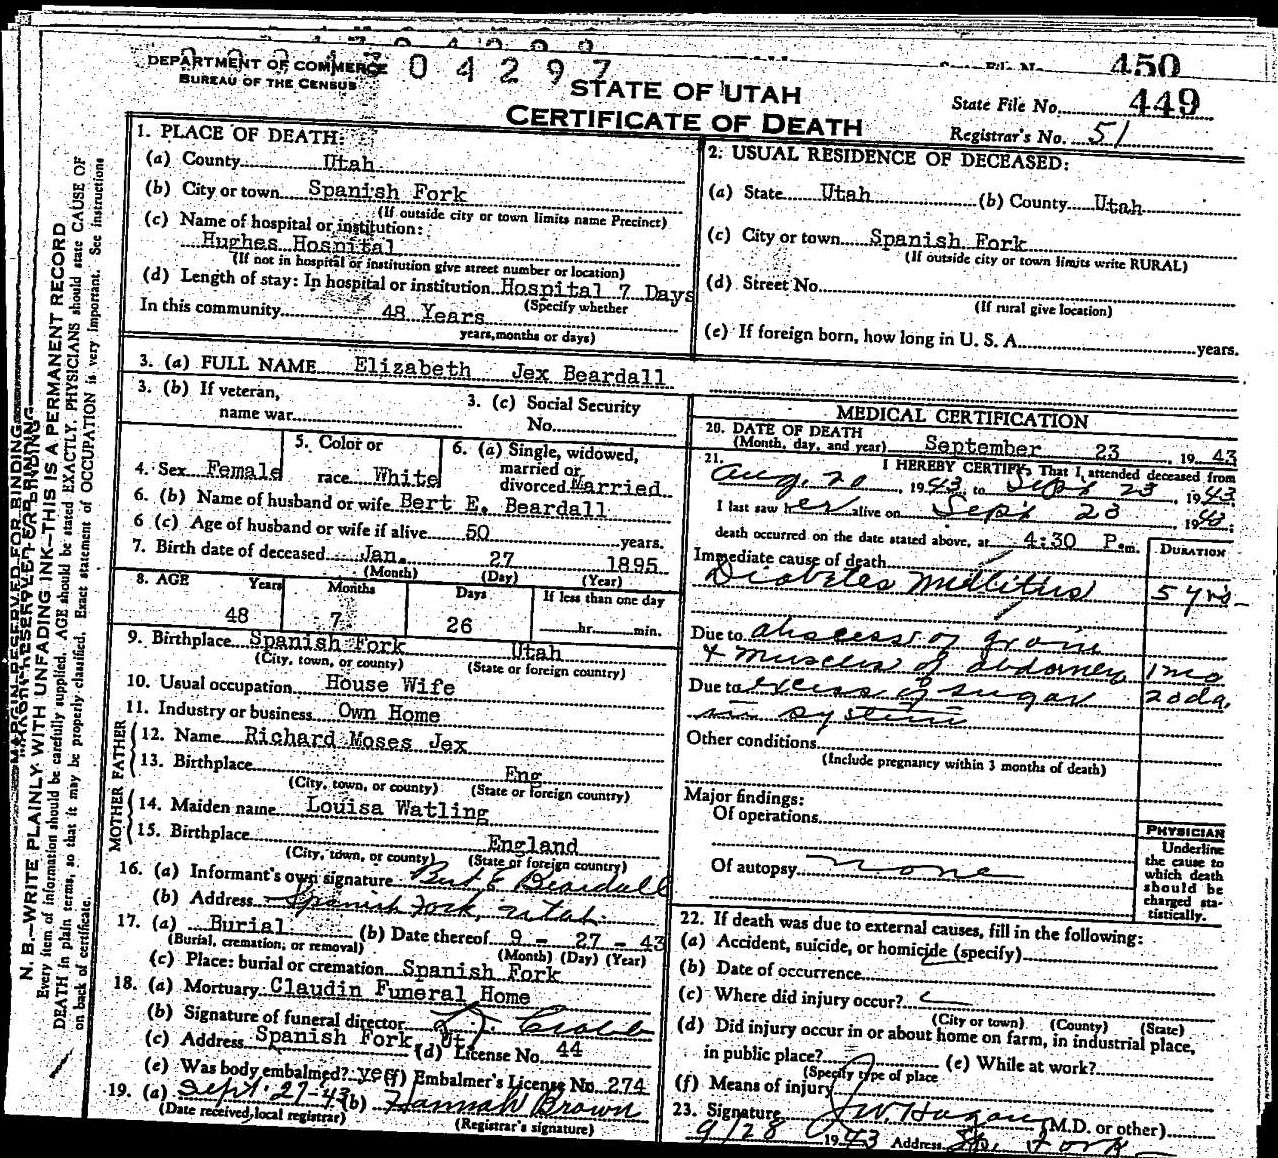 450
DEPARTMENT OF COMMERCE
BUREAU OF THE CENSUS
0 4 2 9 7
STATE OF UTAH
CERTIFICATE OF DEATH
State File No. 449
Registrar's No. 51
1. PLACE OF DEATH:
(a) County Utah
(b) City or town Spanish Fork
(If outside city or town limits name Precinct)
(c) Name of hospital or institution:
Hughes Hospital
(If not in hospital or institution give street number or location)
(d) Length of stay: In hospital or institution Hospital 7 Days
(Specify whether
In this community 48 Years
years, months or days)
2. USUAL RESIDENCE OF DECEASED:
(a) State Utah (b) County Utah
(c) City or town Spanish Fork
(If outside city or town limits write RURAL)
(d) Street No.
(If rural give location)
(e) If foreign born, how long in U. S. A. years.
3. (a) FULL NAME Elizabeth Jex Beardall
3. (b) If veteran,
name war
3. (c) Social Security
No.
4. Sex Female
5. Color or
race White
6. (a) Single, widowed,
married or
divorced Married
6. (b) Name of husband or wife Bert E. Beardall
6 (c) Age of husband or wife if alive 50 years.
7. Birth date of deceased Jan. 27 1895
(Month) (Day) (Year)
8. AGE Years Months Days If less than one day
48 7 26 hr. min.
9. Birthplace Spanish Fork Utah
(City, town, or county) (State or foreign country)
10. Usual occupation House Wife
11. Industry or business Own Home
FATHER
12. Name Richard Moses Jex
13. Birthplace Eng
(City, town, or county) (State or foreign country)
MOTHER
14. Maiden name Louisa Watling
15. Birthplace England
(City, town, or county) (State or foreign country)
16. (a) Informant's own signature Bert E Beardall
(b) Address Spanish Fork, Utah.
17. (a) Burial (b) Date thereof 9 - 27 - 43
(Burial, cremation, or removal) (Month) (Day) (Year)
(c) Place: burial or cremation Spanish Fork
18. (a) Mortuary Claudin Funeral Home
(b) Signature of funeral director
(c) Address Spanish Fork, Ut. (d) License No. 44
(e) Was body embalmed? yes (f) Embalmer's License No. 274
19. (a) Sept. 27-43 (b) Hannah Brown
(Date received local registrar) (Registrar's signature)
MEDICAL CERTIFICATION
20. DATE OF DEATH
(Month, day, and year) September 23 1943
21. I HEREBY CERTIFY, That I attended deceased from
Aug. 20, 1943, to Sept 23, 1943
I last saw her alive on Sept 23 1943;
death occurred on the date stated above, at 4:30 P.m.
DURATION
Immediate cause of death
Diabetes Mellitus 5 yrs
Due to abscess of groin
& muscles of abdomen 1 mo
Due to excess of sugar 20 da.
in system
Other conditions
(Include pregnancy within 3 months of death)
Major findings:
Of operations
Of autopsy none
PHYSICIAN
Underline
the cause to
which death
should be
charged sta-
tistically.
22. If death was due to external causes, fill in the following:
(a) Accident, suicide, or homicide (specify)
(b) Date of occurrence
(c) Where did injury occur?
(City or town) (County) (State)
(d) Did injury occur in or about home on farm, in industrial place,
in public place? (e) While at work?
(Specify type of place
(f) Means of injury
23. Signature (M.D. or other)
9/28 1943 Address Sp. Fork
N. B.—WRITE PLAINLY WITH UNFADING INK—THIS IS A PERMANENT RECORD
Every item of information should be carefully supplied. AGE should be stated EXACTLY. PHYSICIANS should state CAUSE OF
DEATH in plain terms, so that it may be properly classified. Exact statement of OCCUPATION is very important. See instructions
on back of certificate.
MARGIN RESERVED FOR BINDING